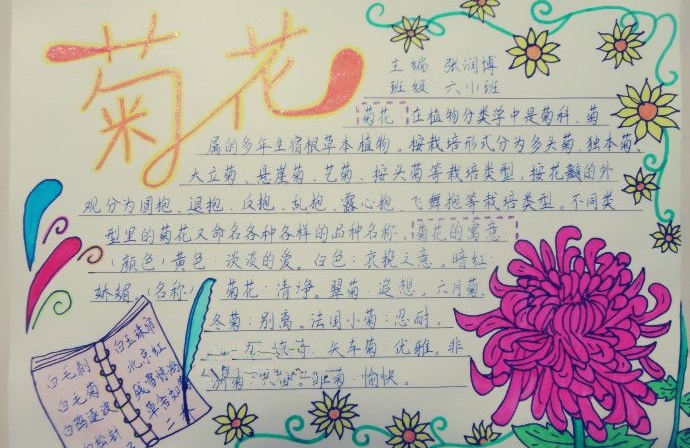 菊花
主编 张润博
班级 六小班
菊花:在植物分类学中是菊科、菊
属的多年生宿根草本植物。按栽培形式分为多头菊、独本菊、
大立菊、悬崖菊、艺菊、按头菊等栽培类型,按花瓣的外
观分为圆抱、退抱、反抱、乱抱、露心抱、飞舞抱等栽培类型。不同类
型里的菊花又命名各种各样的品种名称。菊花的寓意:
(颜色)黄色:淡淡的爱。白色:哀挽之意。暗红:
娇媚。(名称) 菊花:清净。翠菊:追想。六月菊
冬菊:别离。法国小菊:忍耐。
矢车菊:优雅。非
洲菊: 雏菊:愉快。
白毛刺
白毛菊
白鸥逐波
白松针
白玉珠帘
北京红